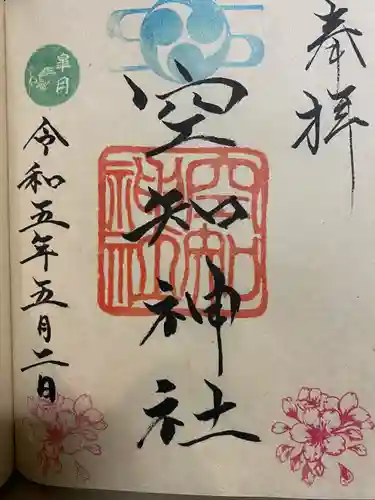 奉拝
空知神社
空知
神社
皐月
令和五年五月二日